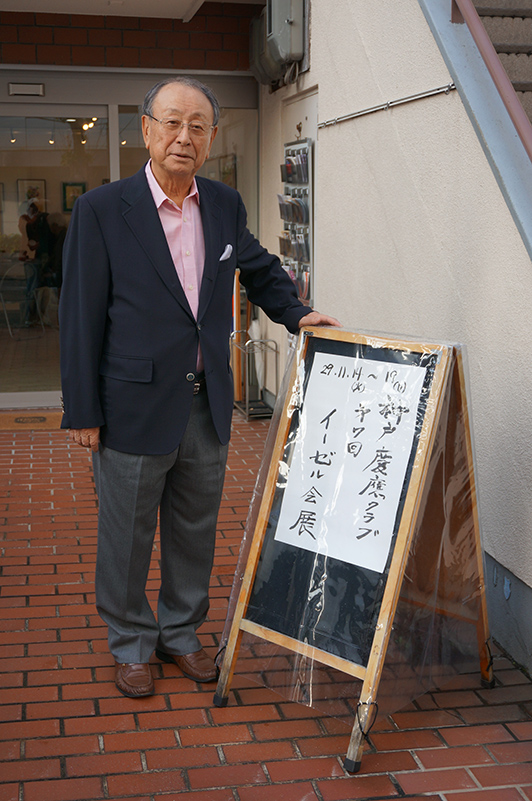 29.11.14(火)～19(日)
神戸慶應クラブ
第7回
イーゼル会展